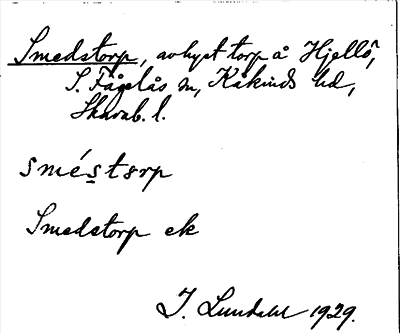 Smedstorp, avhyst torp å Hjellö,
S. Fågelås sn, Kåkinds hd,
Skarab. l.
sméstorp
Smedstorp ek
J. Lundahl 1929.